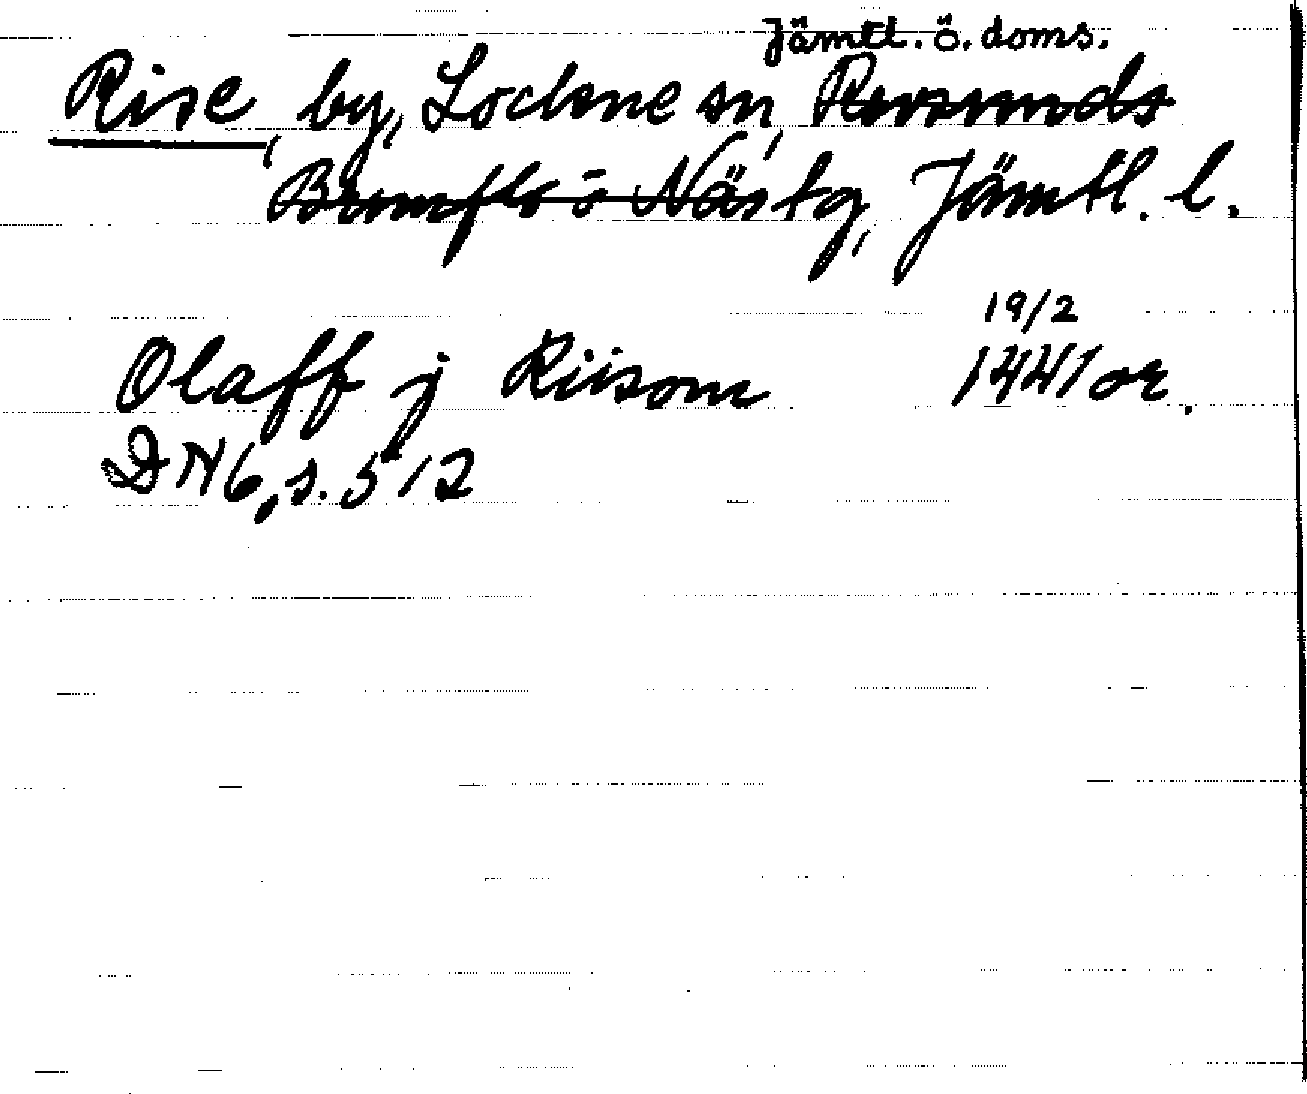 Jämtl. ö. doms.
Rise, by, Lockne sn, Revsunds
Brunflo ö Näs tg, Jämtl. l.
19/2
Olaff j Riisom 1441 or.
DN 6, s. 512